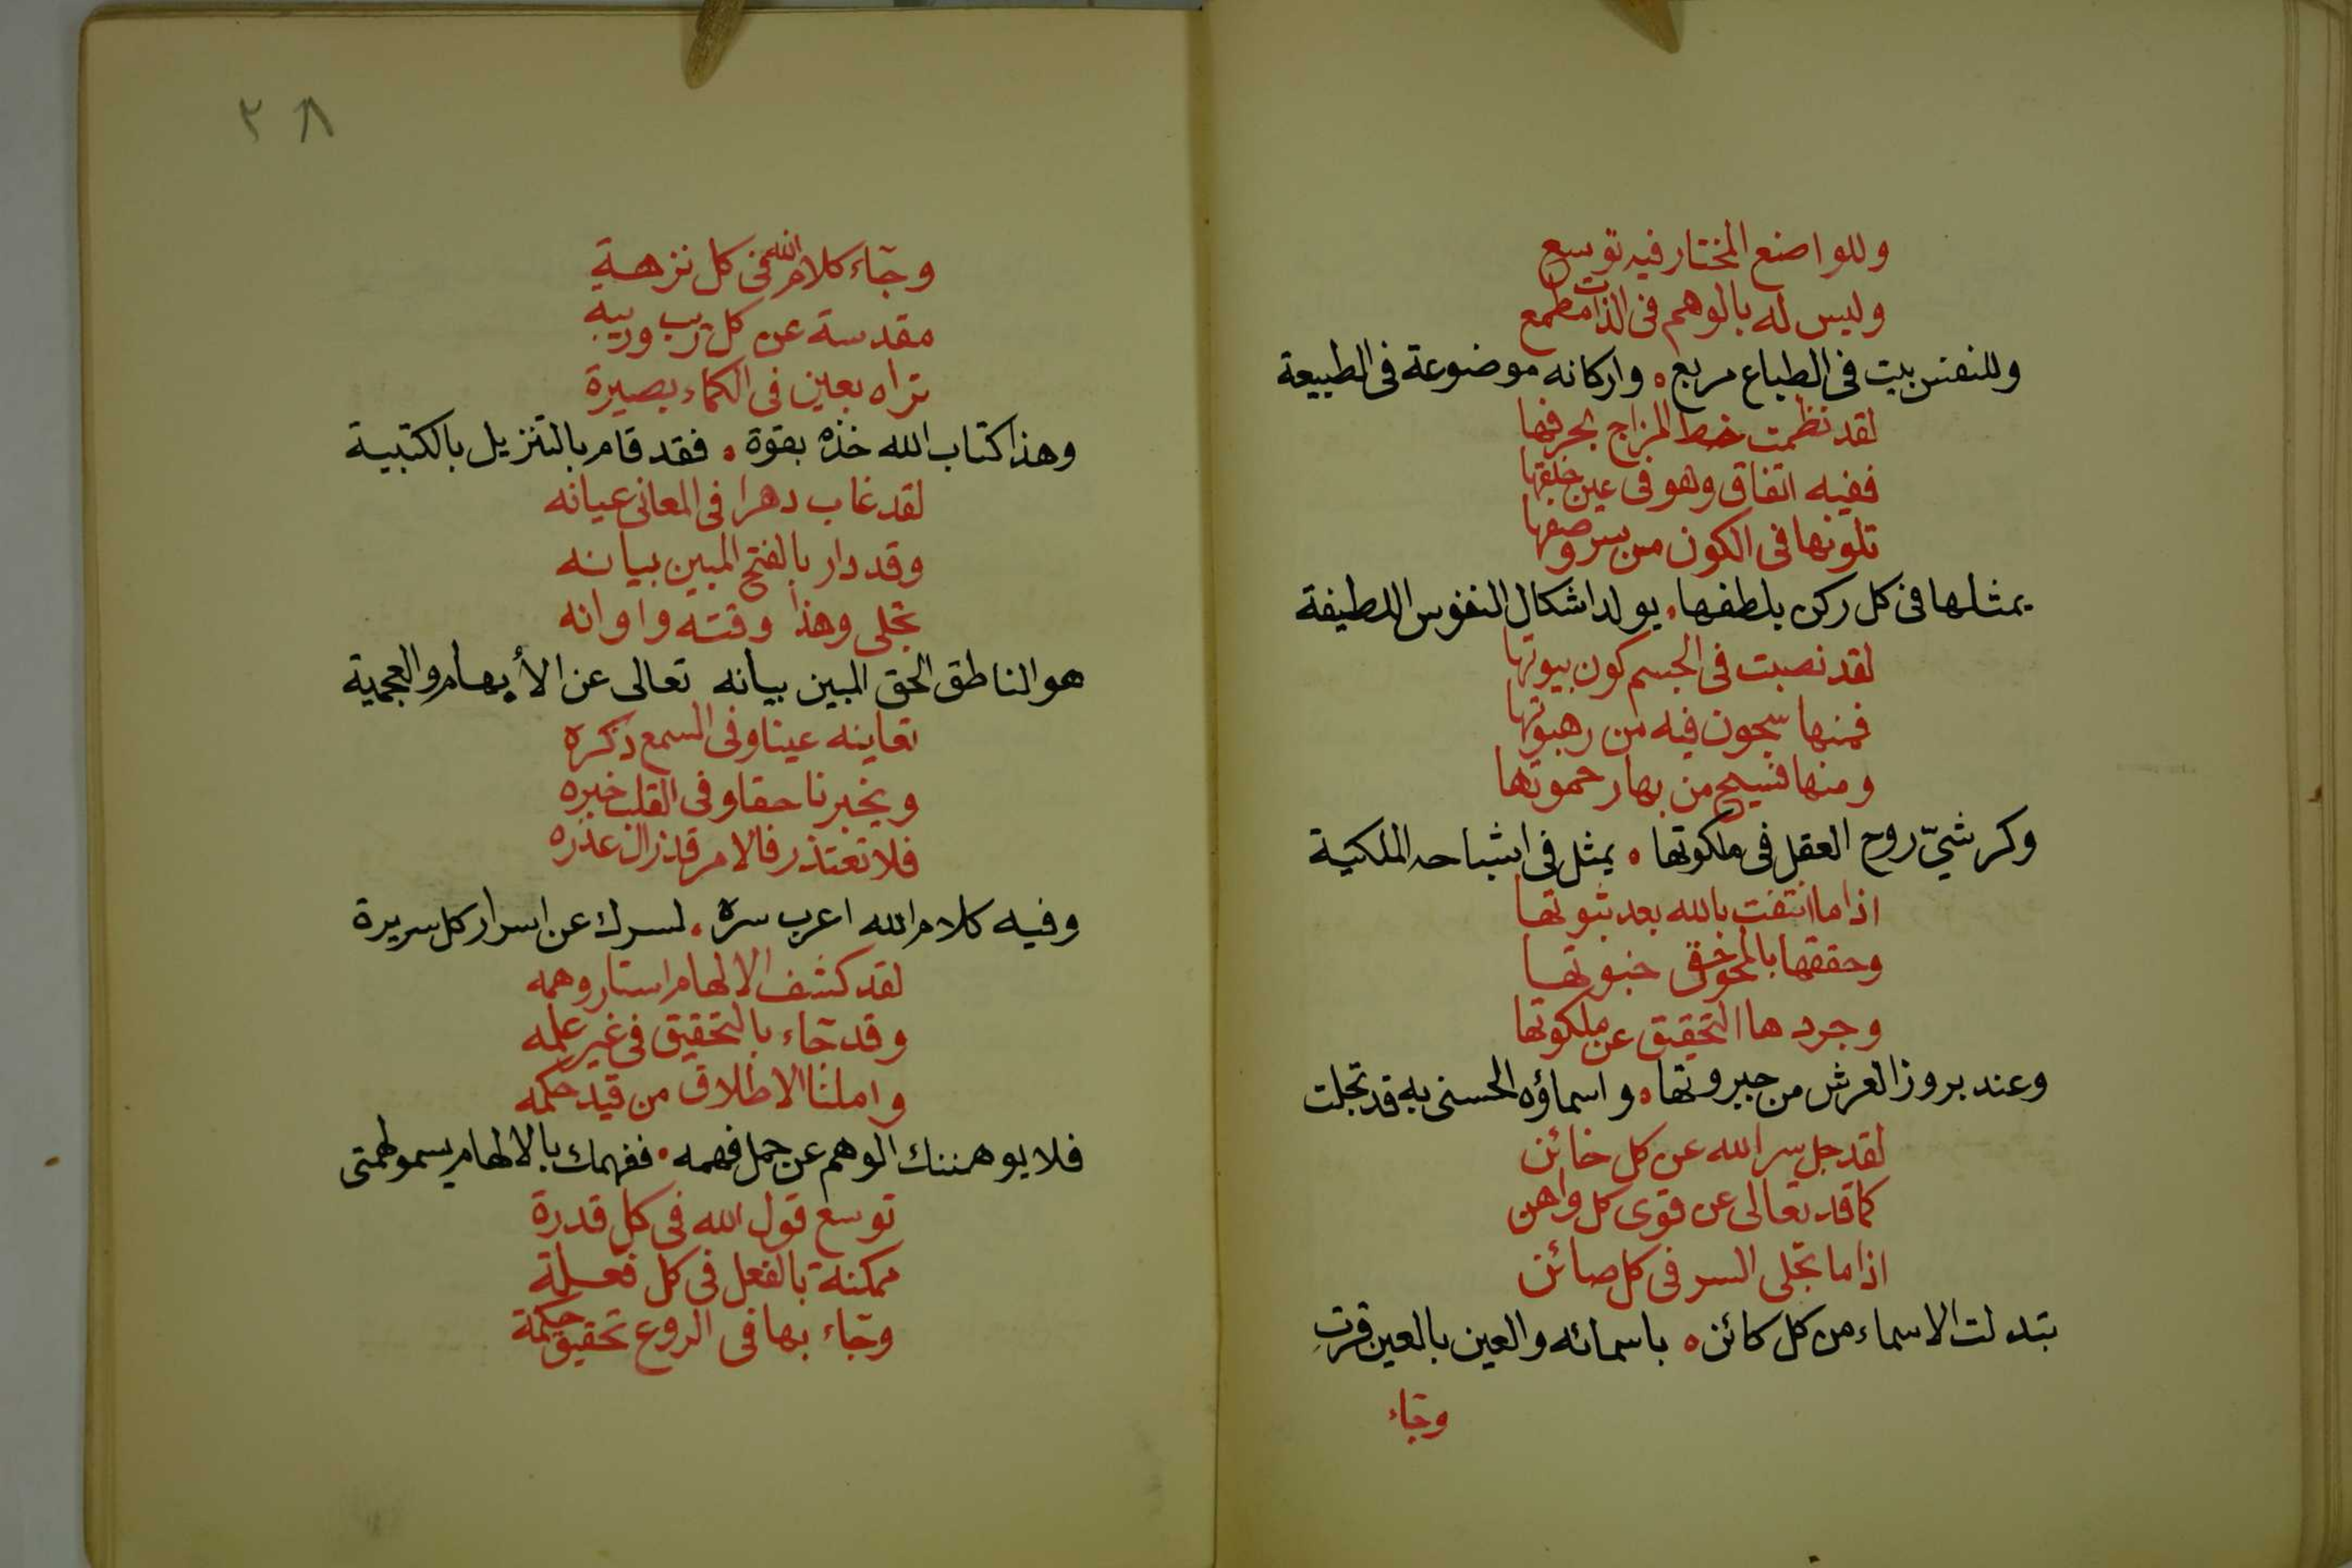 وللواضع المختار فيه توسع
وليس له بالوهم فى الذات مطمع
وللنفس بيت فى الطباع مربع ه واركانه موضوعة فى الطبيعة
لقد نظمت خط المزاج بحرفها
ففيه اتفاق وهو فى عين خلفها
تلونها فى الكون من سر وصفها
يمثلها فى كل ركن بلطفها . يولد اشكال النفوس اللطيفة
لقد نصبت فى الجسم كون بيوتها
فمنها سجون فيه من رهبوتها
ومنها فسيح من بها رحموتها
وكرسّي روح العقل فى ملكوتها ه يمثل فى اشباحه الملكية
اذا ما انتفت بالله بعد ثبوتها
وحققها بالمحو حق خبوتها
وجردها التحقيق عن ملكوتها
وعند بروز العرش من جبروتها ه واسماؤه الحسنى به قد تجلت
لقد جل سر الله عن كل خائن
كما قد تعالى عن قوى كل واهن
اذا ما تجلى السر فى كل صائن
تبدلت الاسماء من كل كائن ه باسمائه والعين بالعين قرت
وجاء
٣٨
وجاء كلام الله فى كل نزهة
مقدسة عن كل ريب وريبة
تراه بعين فى الكماء بصيرة
وهذا كتاب الله خذه بقوة ه فقد قام بالتنزيل بالكتبية
لقد غاب دهرا فى المعانى عيانه
وقد دار بالفتح المبين بيانه
تجلى وهذا وقته واوانه
هو الناطق الحق المبين بيانه تعالى عن الأبهام والعجمية
تعاينه عينا وفى السمع ذكره
ويخبرنا حقا وفى القلب خبره
فلا تعتذر فالامر قد زال عذره
وفيه كلام الله اعرب سره . لسرك عن اسرار كل سريرة
لقد كشف الالهام استار وهمه
وقد جاء بالتحقيق فى غير علمه
واملنا الاطلاق من قيد حكمه
فلا يوهمنك الوهم عن حمل فهمه . ففهمك بالالهام يسمو لهمتى
توسع قول الله فى كل قدرة
ممكنة بالفعل فى كل فعلة
وجاء بها فى الروع تحقيق حكمة